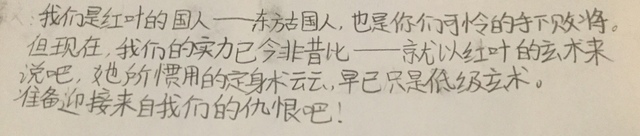 :我们是红叶的国人——东方古国人,也是你们可怜的手下败将。
但现在,我们的实力已今非昔比——就以红叶的玄术来
说吧,她所惯用的定身术云云,早已只是低级玄术。
准备迎接来自我们的仇恨吧!